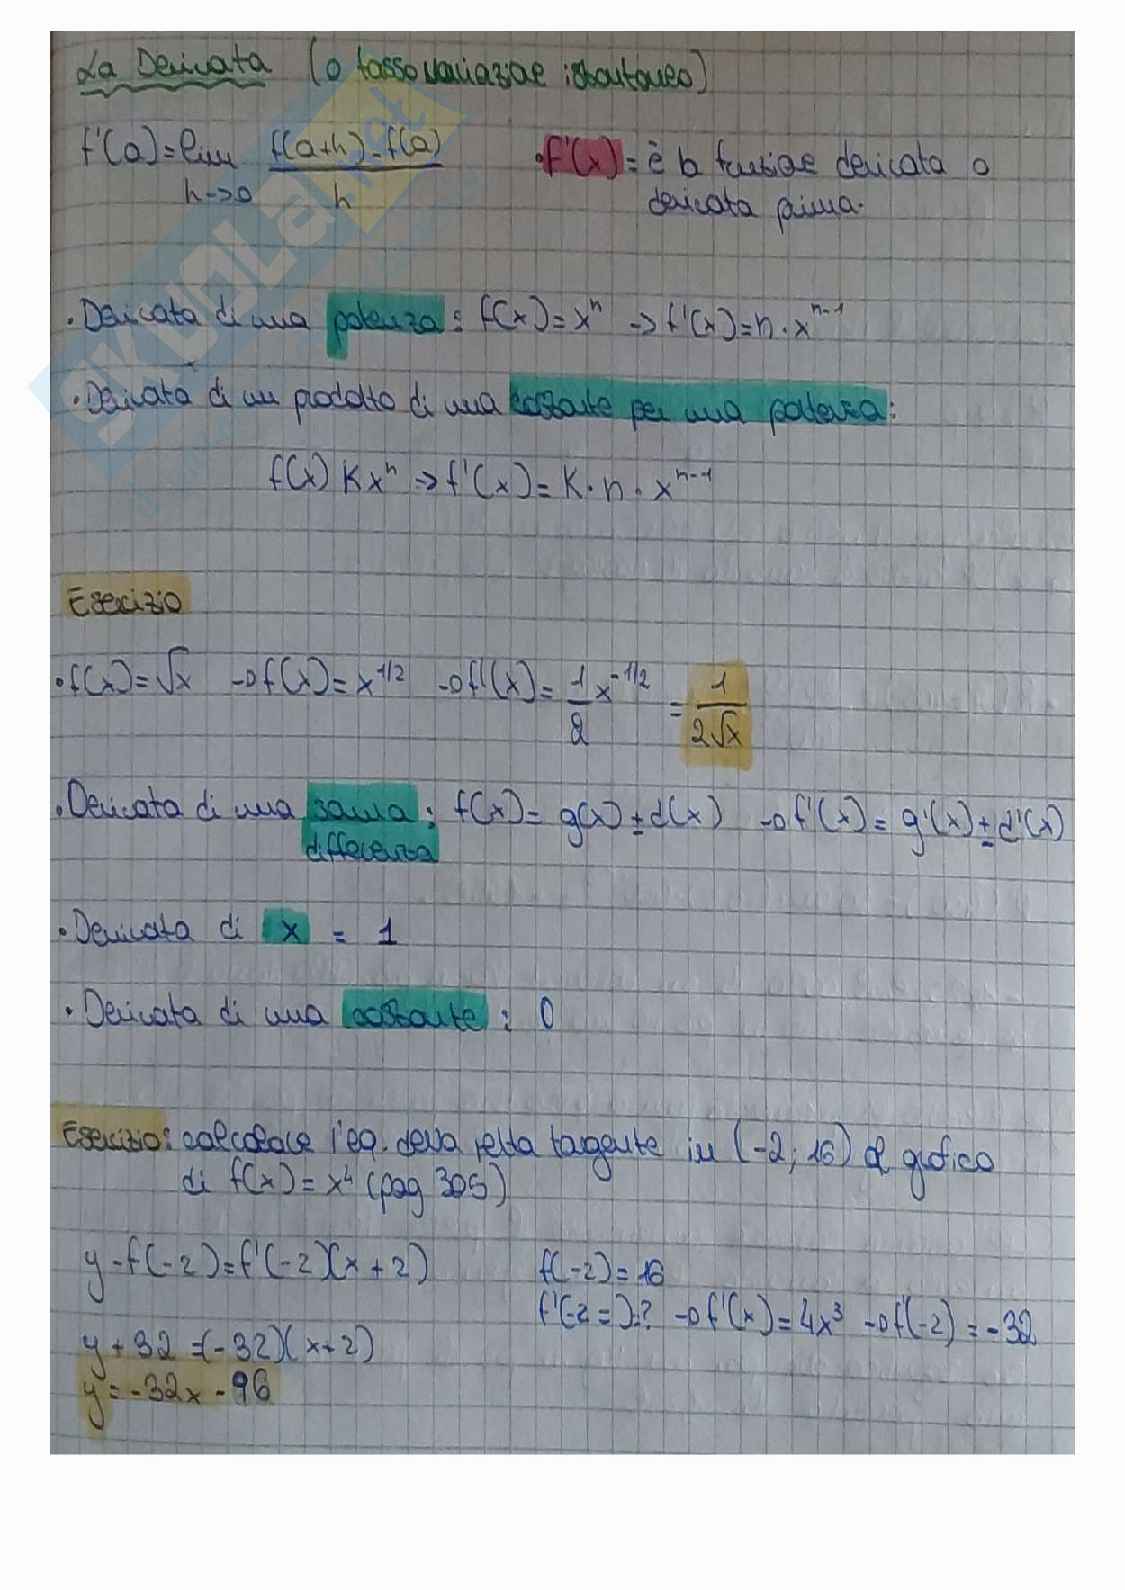 La Derivata (o tasso variazione istantaneo)
f'(a) = lim h->0 f(a+h)-f(a) / h
• f'(x) = è la funzione derivata o
derivata prima.
• Derivata di una potenza: f(x) = xⁿ -> f'(x) = n · xⁿ⁻¹
• Derivata di un prodotto di una costante per una potenza:
f(x) Kxⁿ -> f'(x) = K · n · xⁿ⁻¹
Esercizio
• f(x) = √x -> f(x) = x^1/2 -> f'(x) = 1/2 x^-1/2 = 1/2√x
• Derivata di una somma : f(x) = g(x) ± d(x) -> f'(x) = g'(x) ± d'(x)
differenza
• Derivata di x = 1
• Derivata di una costante : 0
Esercizio: calcolare l'eq. della retta tangente in (-2; 16) al grafico
di f(x) = x⁴ (pag 305)
y - f(-2) = f'(-2)(x + 2)
f(-2) = 16
f'(-2 =)? -> f'(x) = 4x³ -> f'(-2) = -32
y + 32 = (-32)(x+2)
y = -32x - 96
SKUOLA.net